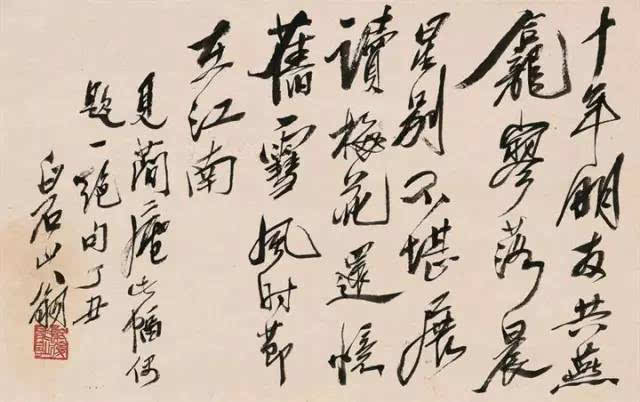 十年朋友共燕
龕寥落晨
星别不堪展
讀梅花還憶
舊雪風時節
在江南
見蕳庵此幅
題一絕句丁丑
白石山翁